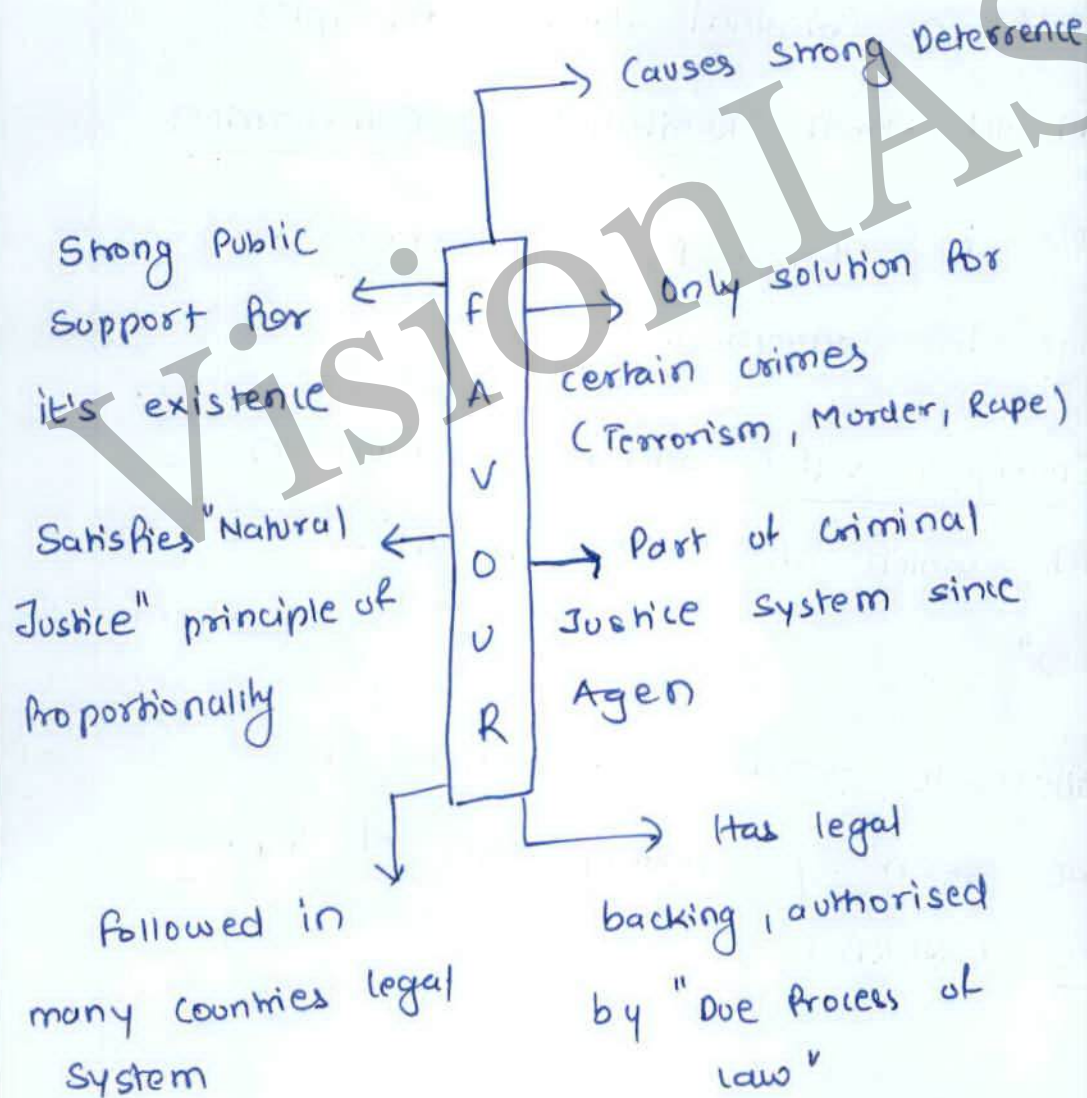 Causes Strong Deterrence
Strong Public
Support for
it's existence
Only solution for
certain crimes
(Terrorism, Murder, Rape)
F
A
V
O
U
R
Satisfies "Natural
Justice" principle of
Proportionality
Part of Criminal
Justice System since
Agen
Followed in
many countries legal
System
Has legal
backing, authorised
by "Due Process of
law"
VisionIAS